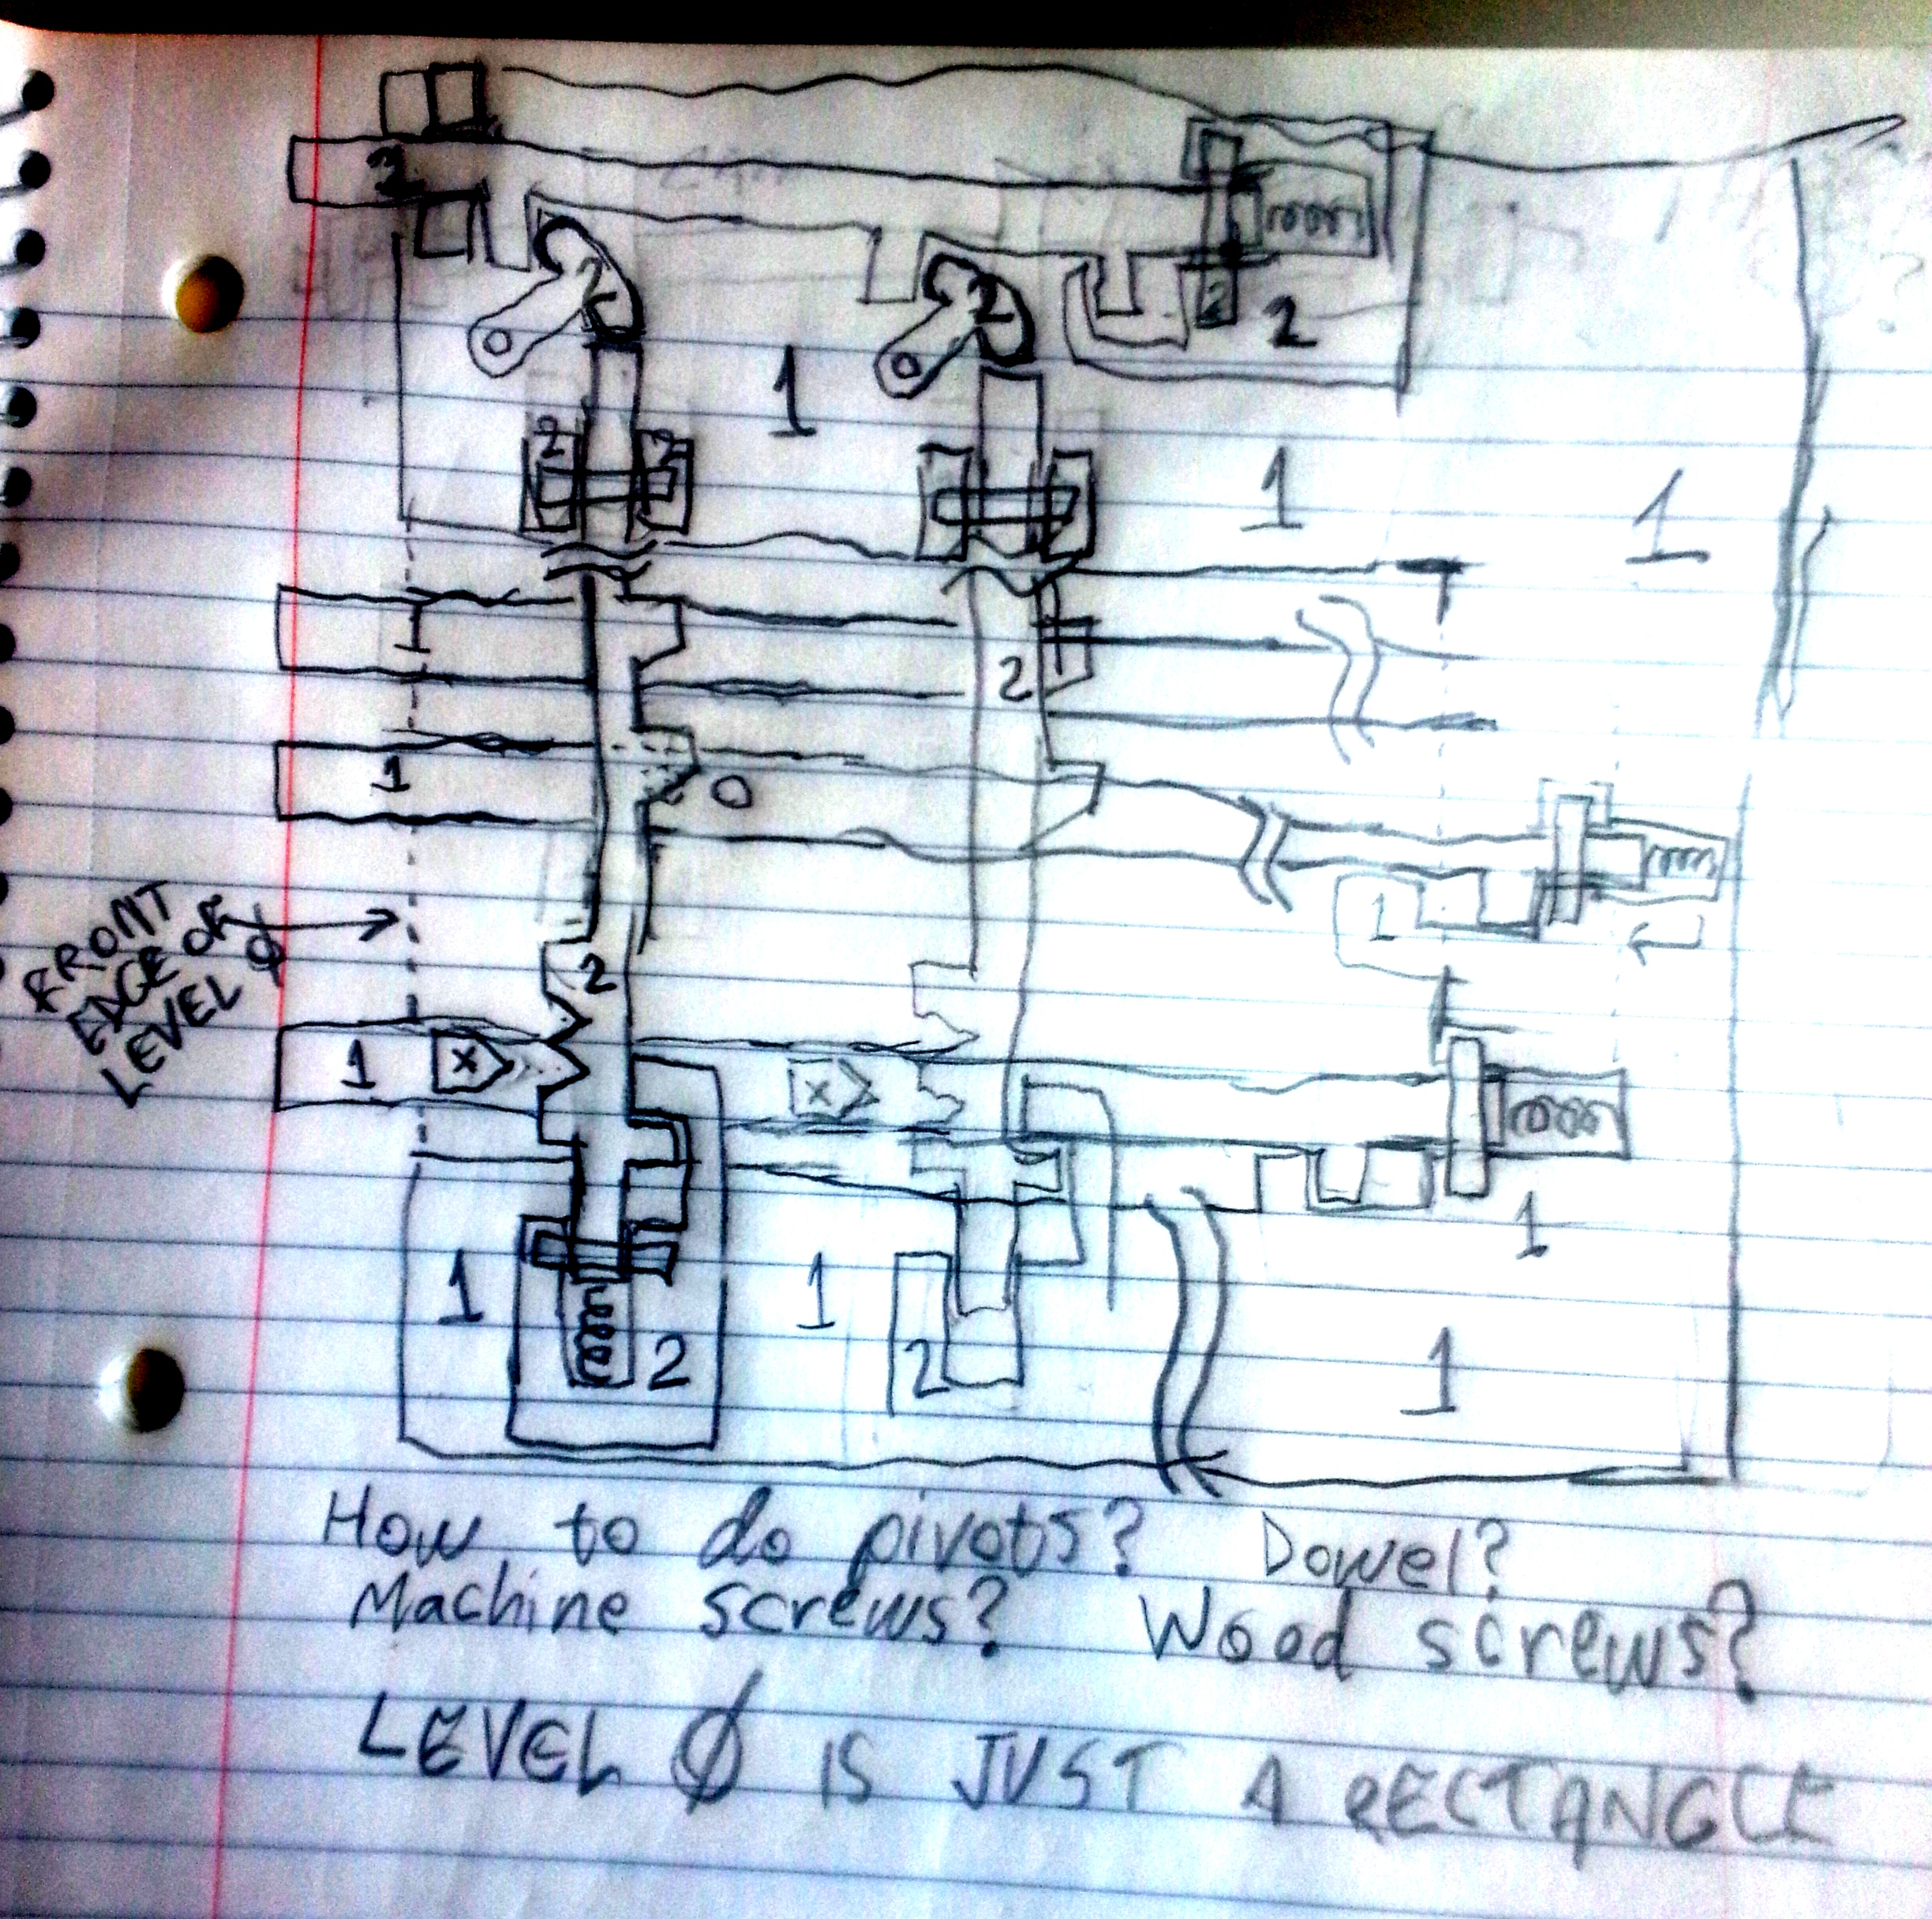 2
2
2
2
2
1
2
2
1
1
1
2
1
0
1
FRONT
EDGE OF
LEVEL Ø
2
1
X
X
1
1
1
2
2
1
How to do pivots? Dowel?
Machine screws? Wood screws?
LEVEL Ø IS JUST A RECTANGLE